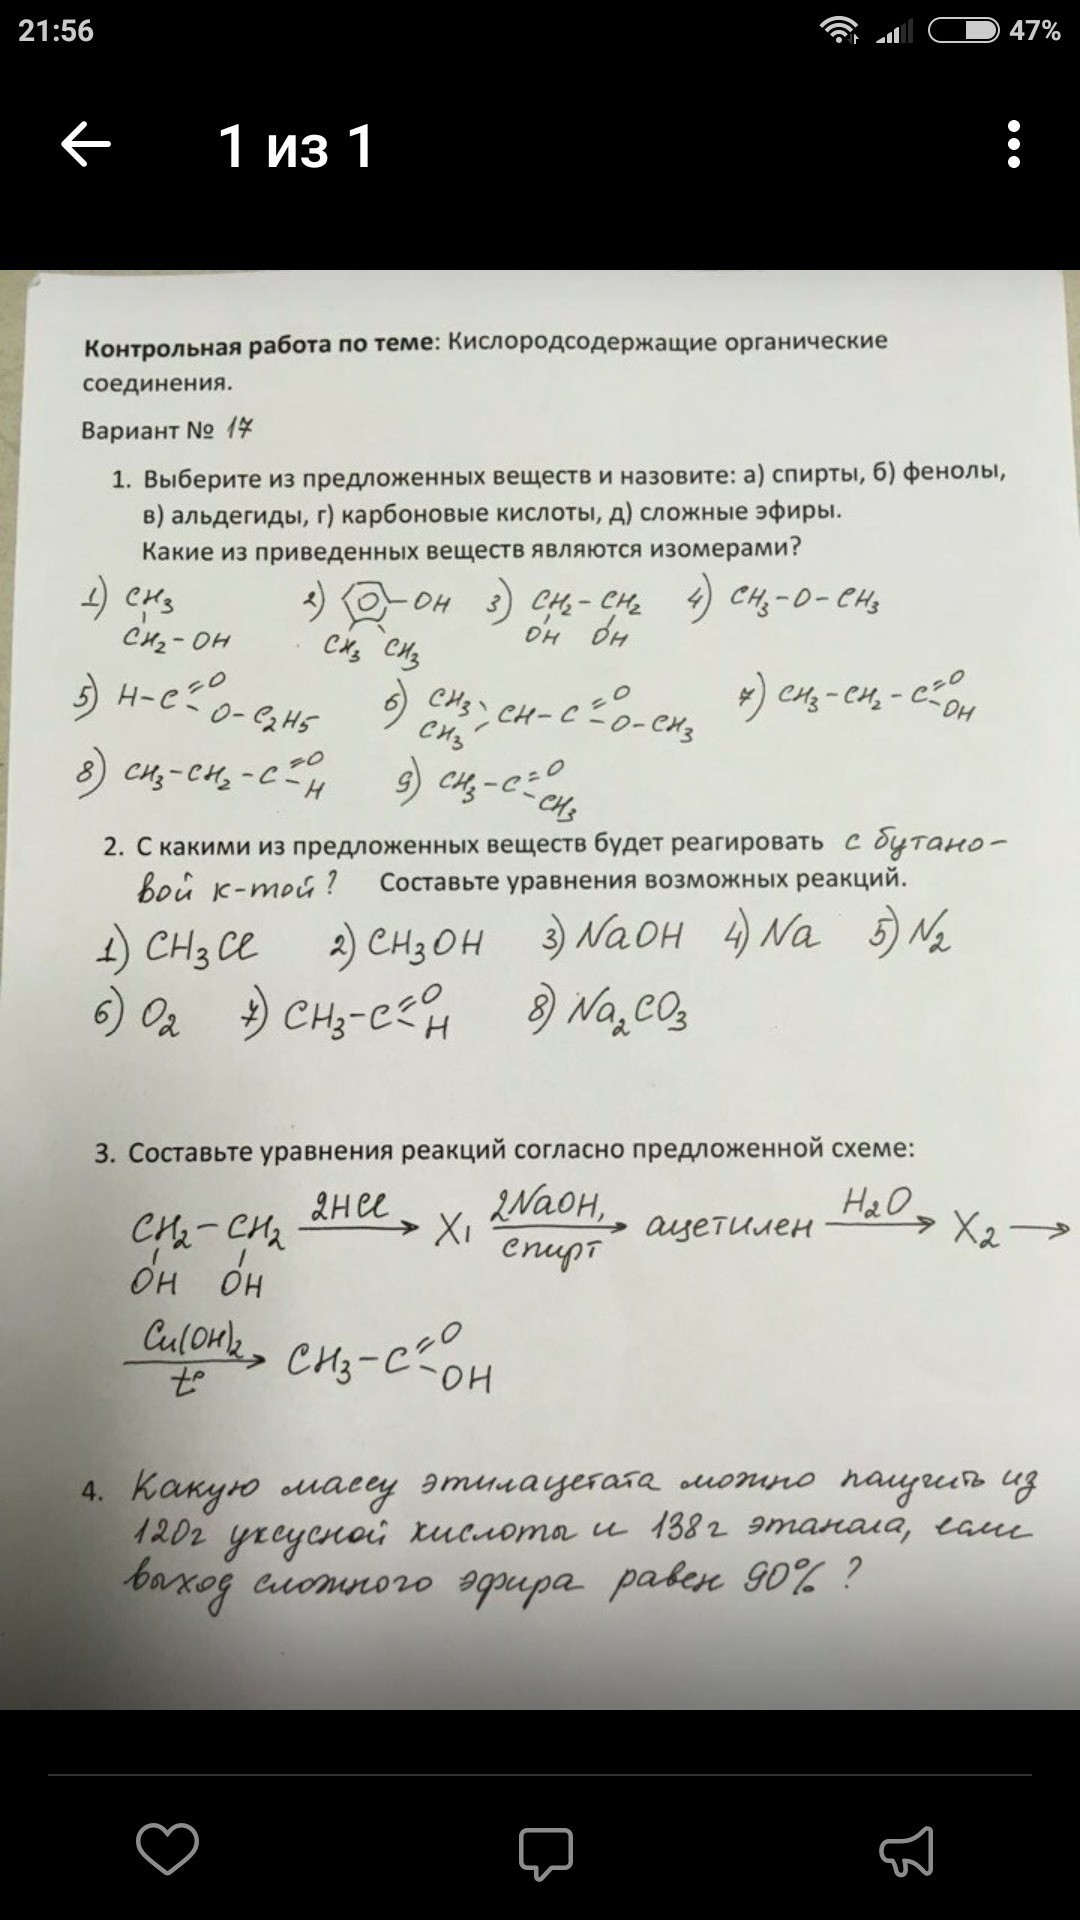 21:56 47%
1 из 1
Контрольная работа по теме: Кислородсодержащие органические
соединения.
Вариант № 17
1. Выберите из предложенных веществ и назовите: а) спирты, б) фенолы,
в) альдегиды, г) карбоновые кислоты, д) сложные эфиры.
Какие из приведенных веществ являются изомерами?
1) CH3 2) OH 3) CH2-CH2 4) CH3-O-CH3
CH2-OH CH3 CH3 OH OH
5) H-C=O O-C2H5 6) CH3 CH3 CH-C=O O-CH3 7) CH3-CH2-C=O OH
8) CH3-CH2-C=O H 9) CH3-C=O CH3
2. С какими из предложенных веществ будет реагировать с бутано-
вой к-той? Составьте уравнения возможных реакций.
1) CH3Cl 2) CH3OH 3) NaOH 4) Na 5) N2
6) O2 7) CH3-C=O H 8) Na2CO3
3. Составьте уравнения реакций согласно предложенной схеме:
CH2-CH2 2HCl → X1 2NaOH, спирт → ацетилен H2O → X2 →
OH OH
Cu(OH)2 t° → CH3-C=O OH
4. Какую массу этилацетата можно получить из
120г уксусной кислоты и 138г этанола, если
выход сложного эфира равен 90%?